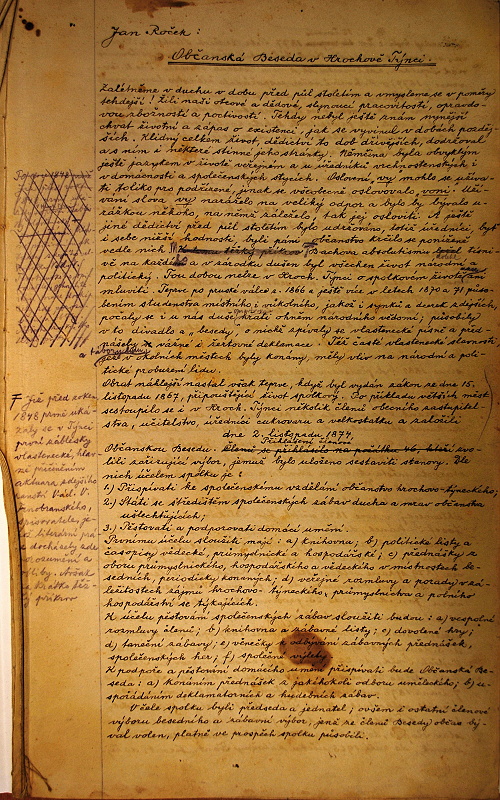 Jan Roček:
Občanská Beseda v Hrochově Týnci.
Zalétněme v duchu v dobu před půl stoletím a vmysleme se v poměry
tehdejší! Žili naši otcové a dědové, slynoucí pracovitostí, opravdo-
vou zbožností a poctivostí. Tehdy nebyl ještě znám nynější
chvat životní a zápas o existenci, jak se vyvinul v dobách pozděj-
ších. Klidný celkem život, dědictví to dob dřívějších, dodržoval
a s ním i některé stinné jeho stránky. Němčina byla obvyklým
ještě jazykem v životě veřejném a u úředníků vrchnostenských i
v domácnosti a společenských stycích. Oslovení, vy mohlo se užíva-
ti toliko pro podřízené, jinak se všeobecně oslovovalo, voni! Uží-
vání slova vy naráželo na veliký odpor a bylo by bývalo u-
rážkou někoho, na němž záleželo, tak jej osloviti. A ještě
jiné dědictví před půl stoletím bylo udržováno, totiž úředníci, byť
i sebe nižší hodnosti, byli páni, občanstvo krčilo se poníženě
vedle nich. Bachova absolutismu ležel tísni-
vě na každém a v zárodku dušen byl všechen život národní a
politický. Tou dobou nelze v Hroch. Týnci o spolkovém životě
mluviti. Teprv po pruské válce z. 1866 a ještě více v letech 1870 a 71 půso-
bením studentstva místního i okolního, jakož i synků a dcerek zdejších,
počaly se i u nás duše křísiti ohněm národního vědomí; působily
v to divadlo a „besedy“ o nichž zpívaly se vlastenecké písně a před-
nášely vážné i žertovné deklamace. Též časté vlastenecké slavnosti,
a táborů lidu
jež v okolních městech byly konány, měly vliv na národní a poli-
tické probuzení lidu.
Obrat náhlejší nastal však teprve, když byl vydán zákon ze dne 15.
listopadu 1867, připouštějící život spolkový. Po příkladu větších měst
sestoupilo se i v Hroch. Týnci několik členů obecního zastupitel-
stva, učitelstvo, úředníci cukrovaru a velkostatku a založili
dne 2. listopadu 1874
Občanskou Besedu.
volili zařizující výbor, jemuž bylo uloženo sestaviti stanovy. Dle
nich účelem spolku je:
1.) Přispívati ke společenskému vzdělání občanstva hrochovo-týneckého;
2.) Státi se střediskem společenských zábav ducha a mrav občanstva
ušlechťujících;
3.) Pěstovati a podporovati domácí umění.
Prvnímu účelu sloužiti mají: a) knihovna; b) politické listy a
časopisy vědecké, průmyslnické a hospodářské; c) přednášky z
oboru průmyslnického, hospodářského a vědeckého v místnostech be-
sedních, periodicky konaných; d) veřejné rozmluvy a porady v zá-
ležitostech zájmů hrochovo-týneckého, průmyslnictva a polního
hospodářství se týkajících.
K účelu pěstování společenských zábav sloužiti budou: a) vespolné
rozmluvy členů; b) knihovna a zábavné listy; c) dovolené hry;
d) taneční zábavy; e) věnečky k odbývání zábavných přednášek,
společenských her; f) společné výlety.
K podpoře a pěstování domácího umění přispívati bude Občanská Be-
seda: a) konáním přednášek z jakéhokoli odboru uměleckého; b) u-
spořádáním deklamatorních a hudebních zábav.
V čele spolku byli předseda a jednatel; ovšem i ostatní členové
výboru besedního a zábavní výbor, jenž ze členů Besedy občas bý-
val volen, platně ve prospěch spolku působili.
Již před rokem
1848 první uká-
zaly se v Týnci
první záblesky
vlastenecké, hlav-
ně přičiněním
aktuára zdejšího